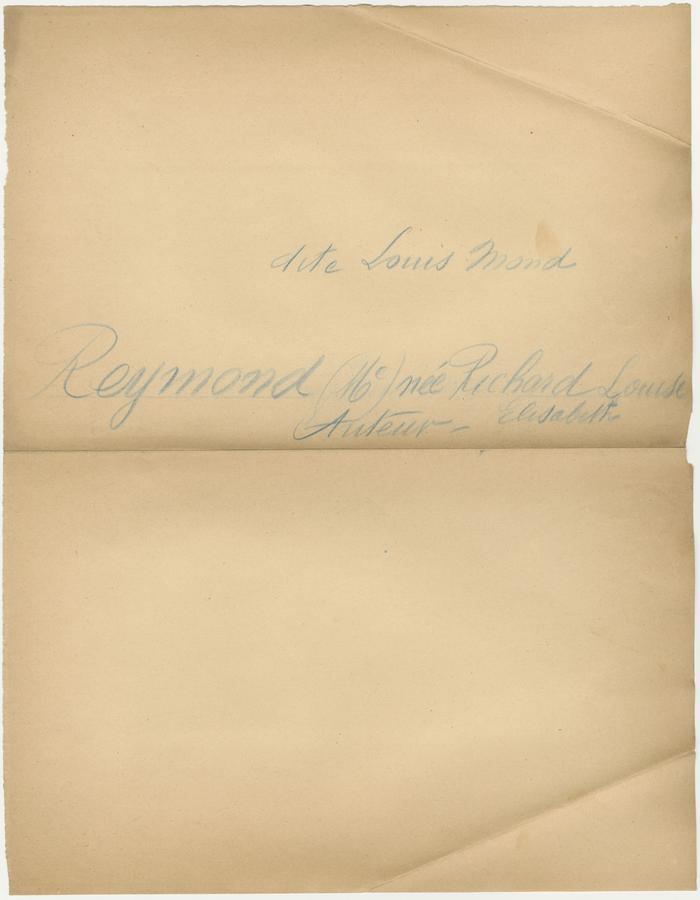 dite Louis Mond
Reymond (Me) née Richard Louise
Elisabeth
Auteur -